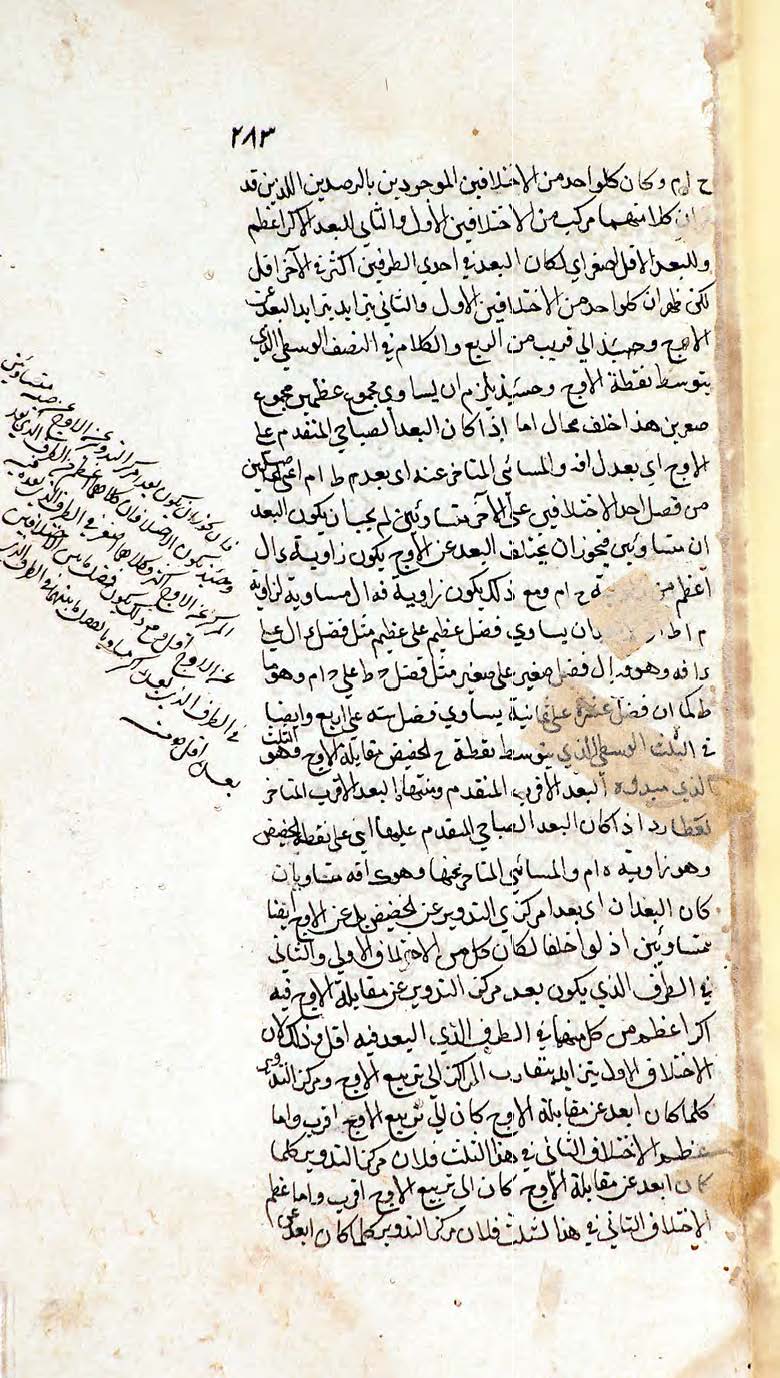 ٢٨٣
ح ام وكان كلواحد من الاختلافين الموجودين بالرصدين اللذين قد
ان كلا منهما مركب من الاختلافين الاول والثاني للبعد الاكثر اعظم
وللبعد الاقل اصغر اي لكان البعد في احدي الطرفين اكثر في الآخر اقل
لكن ظهر ان كلواحد من الاختلافين الاول والثاني يتزايد بتزايد البعد عن
الاوج وحينئذ الي قريب من الربع والكلام في النصف الوسطي الذي
يتوسط نقطة الاوج وحينئذ يلزم ان يساوي مجموع عظيمين مجموع
صغيرين هذا خلف محال اما اذا كان البعد الصباحي المتقدم علي
الاوج اي بعد ل اف والمسائي المتاخر عنه اي بعد م ط ام اعني
من فصل احد الاختلافين علي الآخر متساويين لم يجب ان يكون البعد
ان متساويين فيجوزان يختلف البعد عن الاوج يكون زاوية ء ال
اعظم من ح ام ومع ذلك يكون زاوية ف ال مساوية لزاوية
م اط ان يساوي فضل عظيم علي عظيم مثل فضل ال علي
ء اف وهو ف ال فضل صغير علي صغير مثل فضل ح ط علي ح ام وهو ما
ط كما ان فضل عشرة علي ثمانية يساوي فضل سته علي اربع وايضا
في الثلث الوسطي الذي يتوسط نقطة ح الحضيض مقابلة الاوج فهو الثلث
الذي مبدوه البعد الاقرب المتقدم ومنتهاه البعد الاقرب المتاخر
لعطارد اذا كان البعد الصباحي المتقدم عليها اي علي نقطة الحضيض
وهو زاوية ه ام والمسائي المتاخر عنها وهو ك اف متساويات
كان البعدان اي بعدا مركزي التدوير عن الحضيض بل عن الاوج ايضا
متساويين اذ لو اختلفا لكان كل من الاختلاف الاولي والثاني
في الطرف الذي يكون بعد مركز التدوير عن مقابلة الاوج فيه
اكثر اعظم من كل منهما في الطرف الذي البعد فيه اقل وذلك لان
الاختلاف الاول يتزايد بتقارب المراكز الي تربيع الاوج ومركز التدوير
كلما كان ابعد عن مقابلة الاوج كان الي تربيع الاوج اقرب واما
عظم الاختلاف الثاني في هذا الثلث فلان مركز التدوير كلما
كان ابعد عن مقابلة الاوج كان الي تربيع الاوج اقرب واما عظم
الاختلاف الثاني في هذا الثلث فلان مركز التدوير كلما كان ابعد عن
فان يكون بعد مركز التدوير عن الاوج متساويين
وحينئذ يكون الاختلافان كلاهما اعظم في الطرف الذي بعد
المركز عن الاوج اكثر وكلاهما اصغر في الطرف الذي بعده فيه
عن الاوج اقل ومع ذلك يكون فضل ما بين الاختلافين
في الطرف الذي بعده اكثر مساويا لفضل ما بينهما في الطرف الذي
بعده اقل